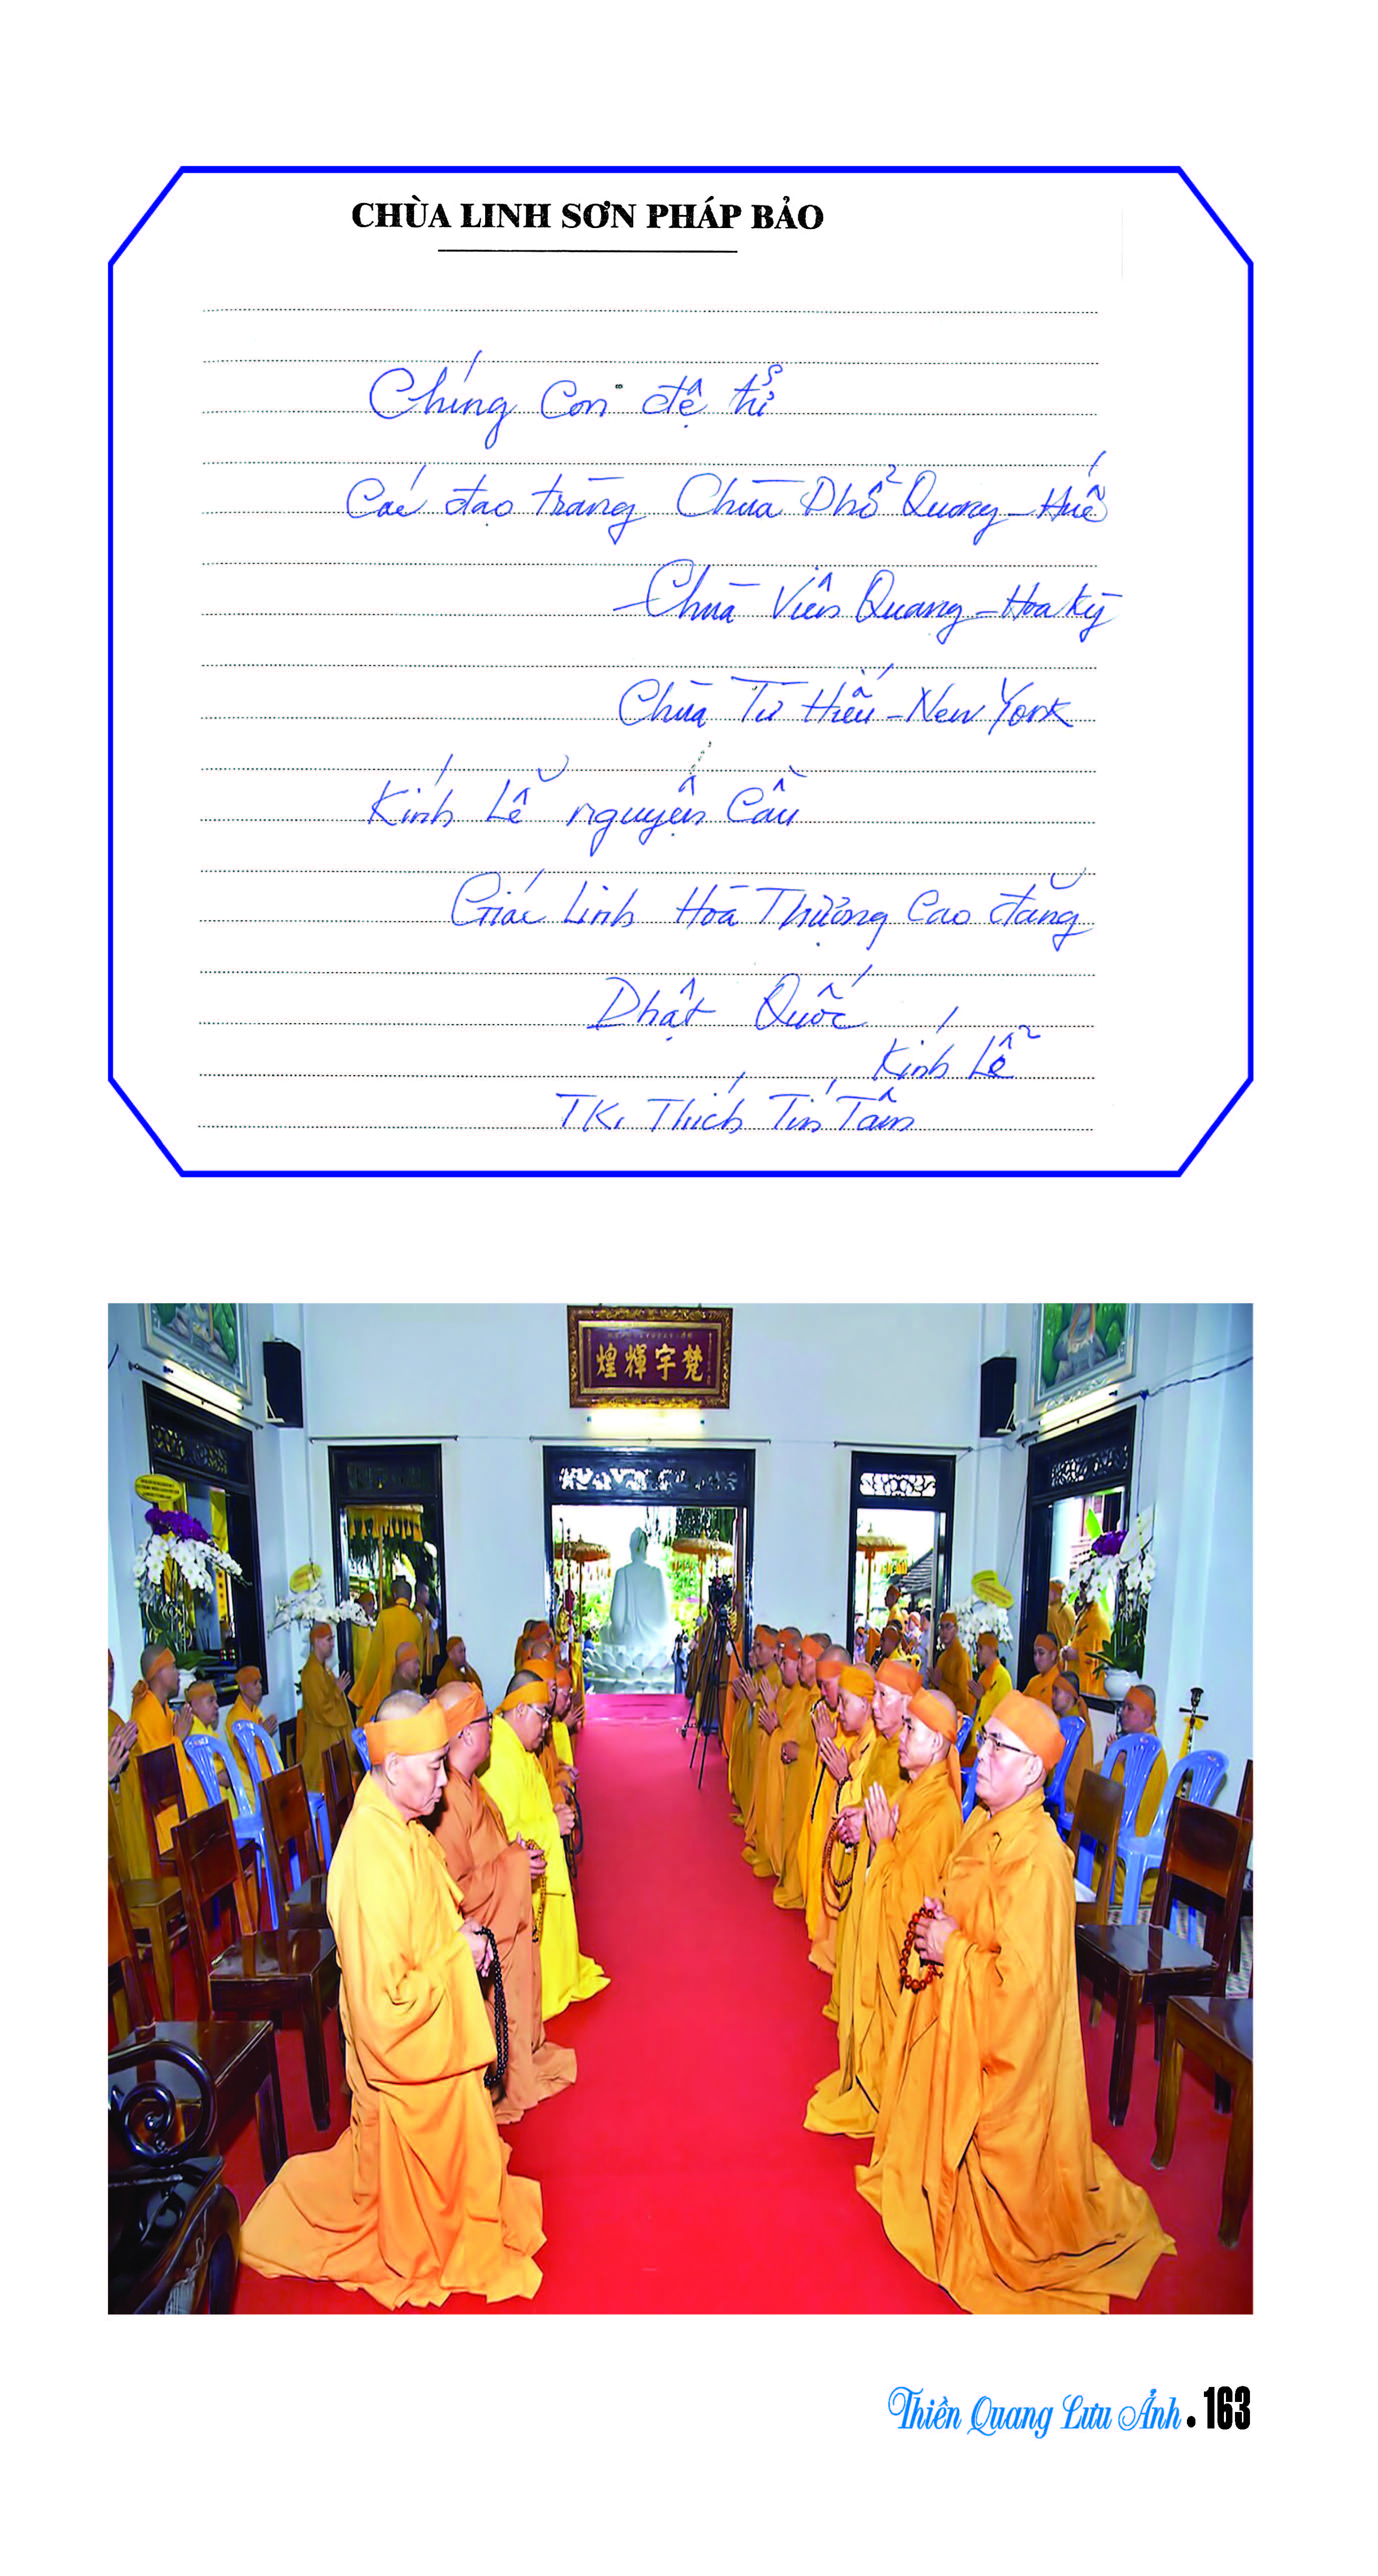 CHÙA LINH SƠN PHÁP BẢO
Chúng Con đệ tử
Các đạo tràng Chùa Phổ Quang - Huế
- Chùa Viên Quang - Hoa Kỳ
Chùa Từ Hiếu - New York
Kính Lễ nguyện Cầu
Giác Linh Hòa Thượng Cao đăng
Phật Quốc
Kính Lễ
TK. Thích Tín Tâm
煌輝宇梵
Thiền Quang Lưu Ảnh . 163